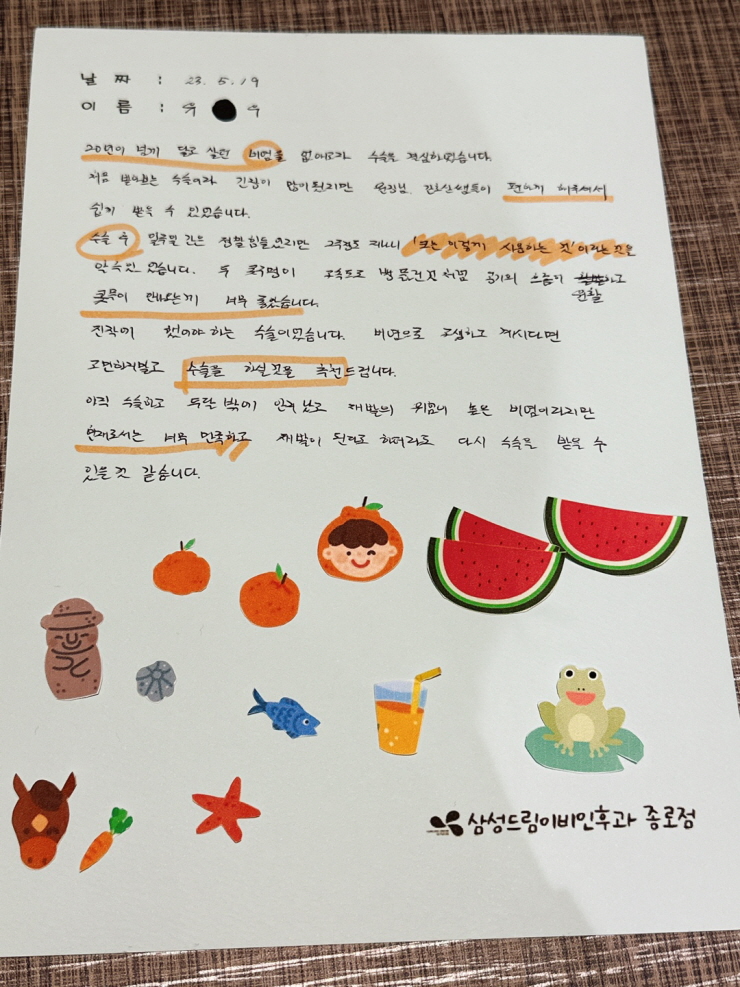 날 짜 : 23. 5. 19
이 름 : 유 수
20년이 넘게 달고 살던 비염을 없애고자 수술을 결심하였습니다.
처음 받아보는 수술이라 긴장이 많이 됬지만 원장님, 간호사쌤들이 편하게 해주셔서
쉽게 받을 수 있었습니다.
수술 후 일주일 간은 정말 힘들었지만 2주정도 되니 '코는 이렇게 사용하는 것'이라는 것을
알 수 있었습니다. 두 콧구멍이 고속도로 뻥 뚫린것 처럼 공기의 흐름이 원활하고
콧물이 안나오는게 너무 좋았습니다.
진작에 했어야 하는 수술이었습니다. 비염으로 고생하고 계시다면
고민하지말고 수술을 하실것을 추천드립니다.
아직 수술하고 두달 밖에 안지났고 재발의 위험이 높은 비염이라지만
현재로서는 너무 만족하고 재발이 된다고 하더라도 다시 수술을 받을 수
있을것 같습니다.
삼성드림이비인후과 종로점